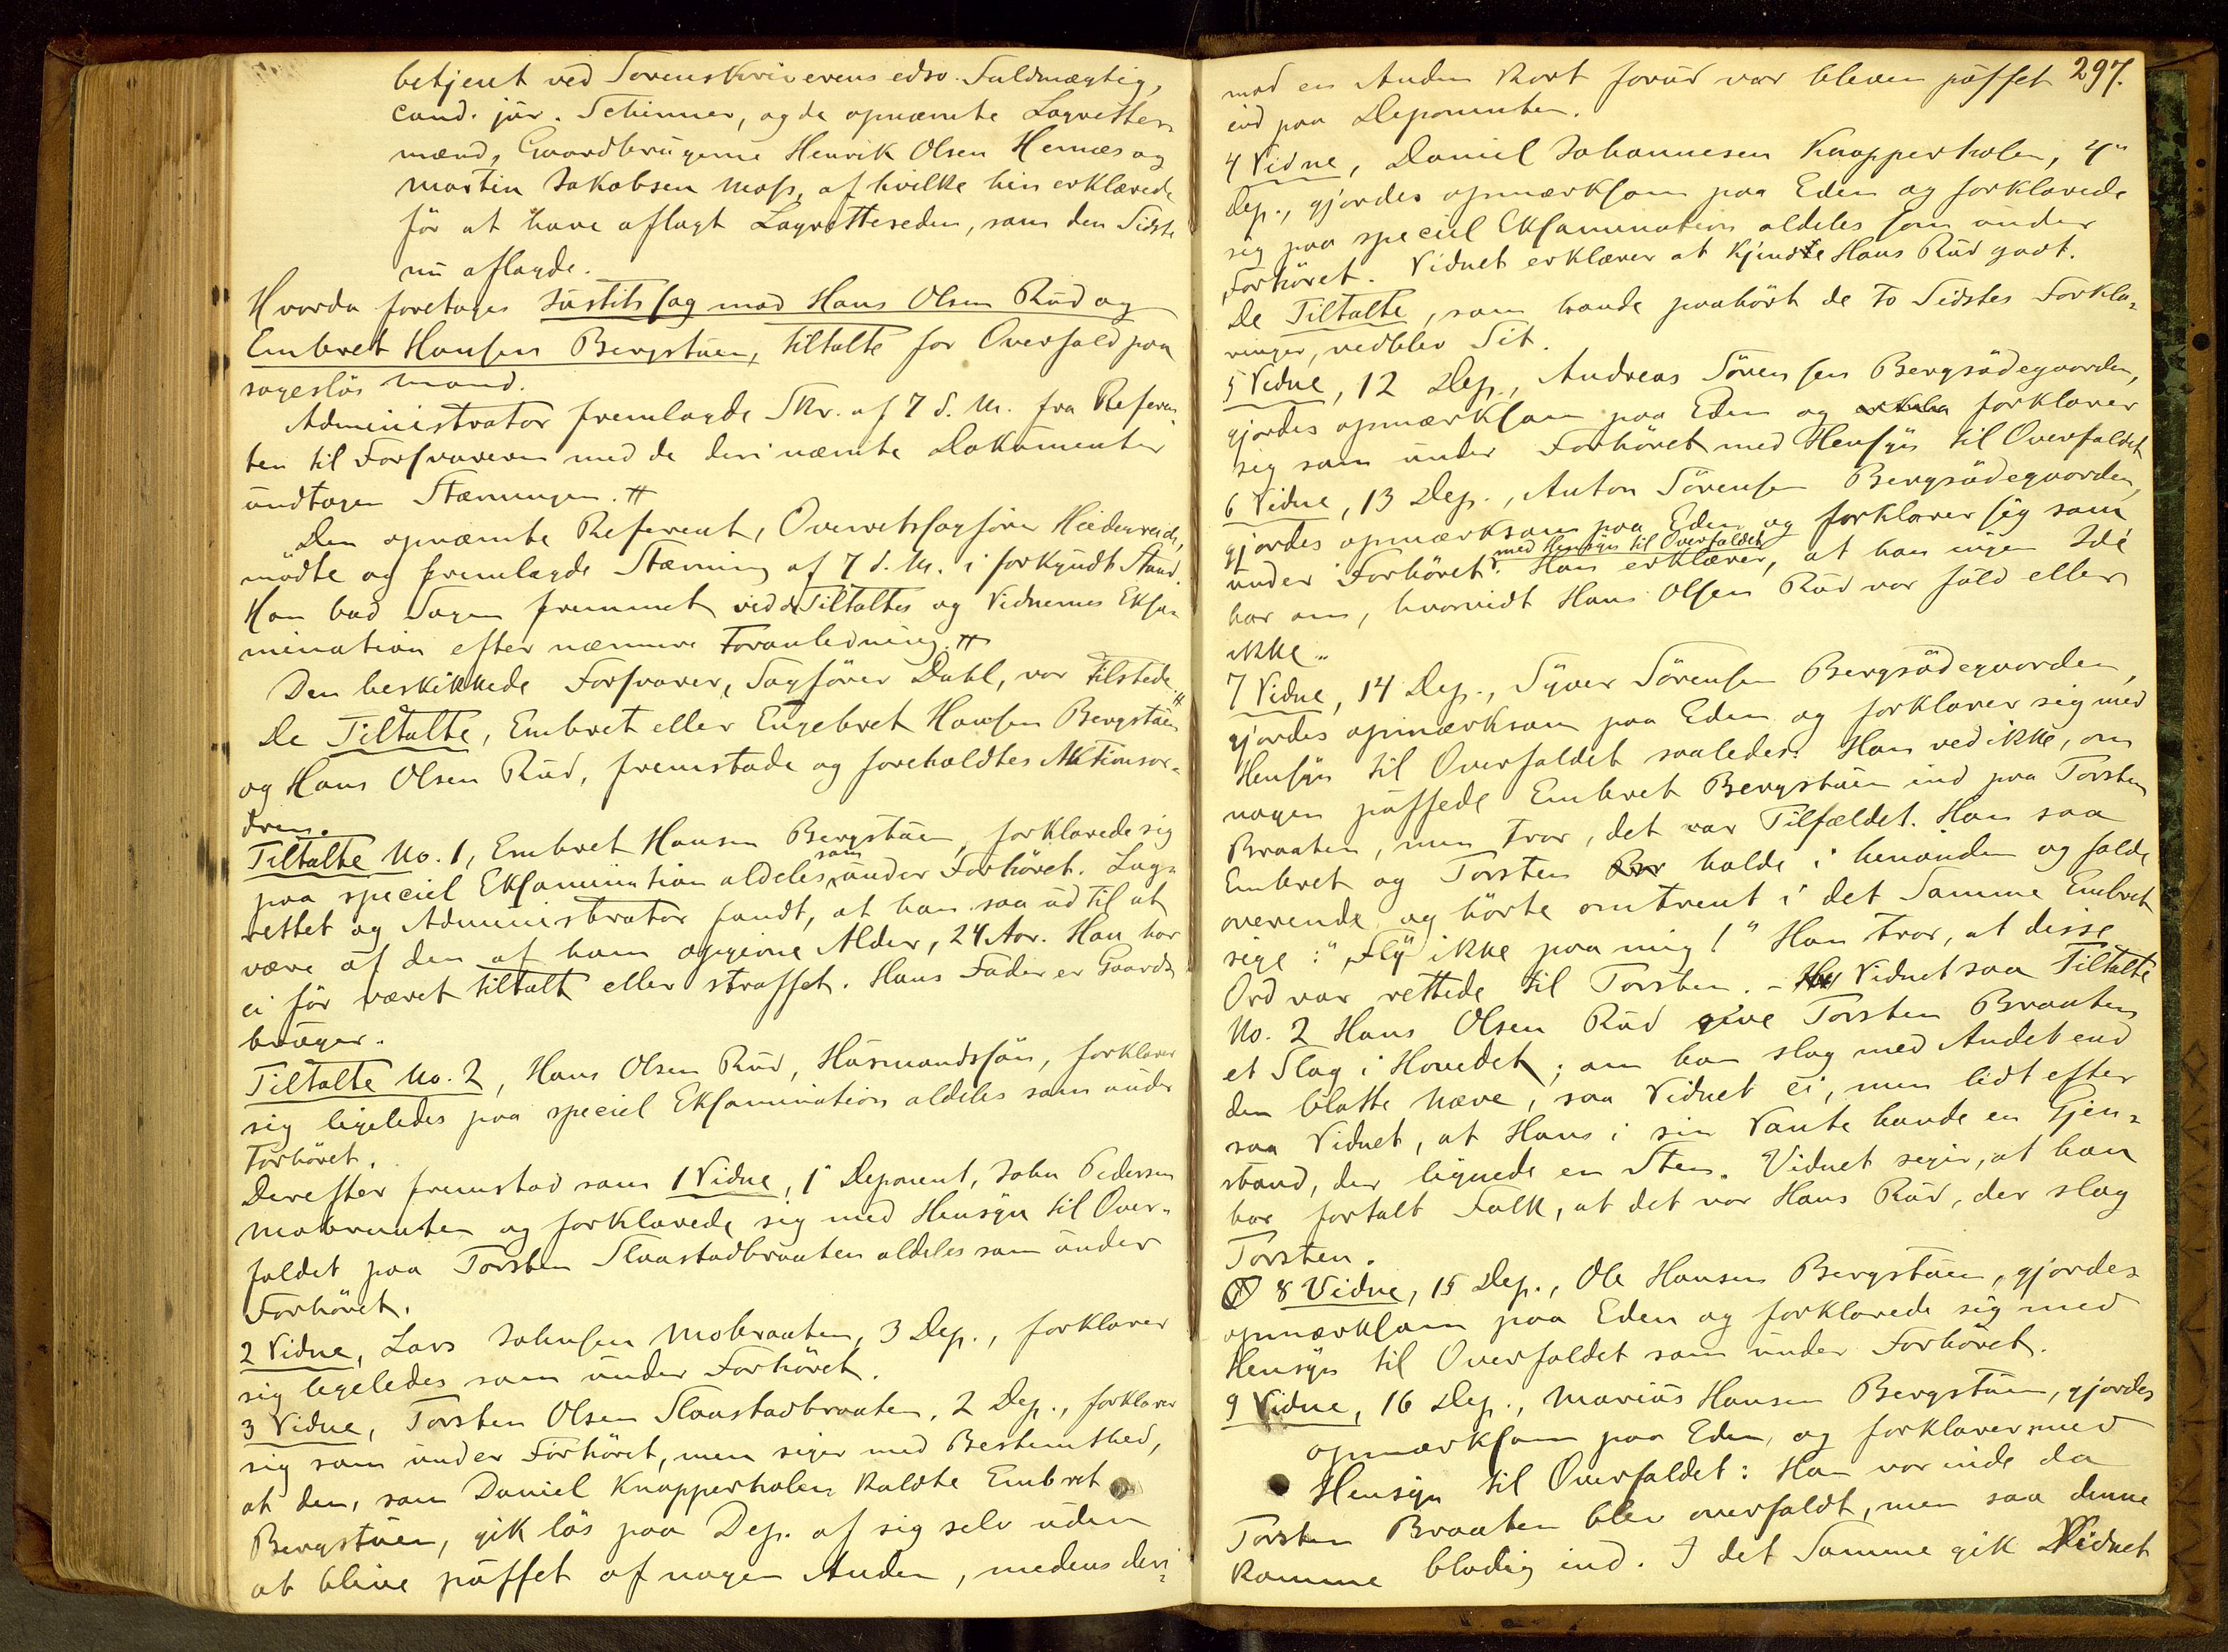 betjent ved Sorenskriverens edsv. Fuldmægtig,
cand. jur. Schinner, og de opnævnte Lagrettes-
mænd, Gaardbrugerne Henrik Olsen Hernæs og
Martin Jakobsen Moss, af hvilke hin erklærede
før at have aflagt Lagretteseden, som den Sidste
nu aflagde.
Hvorda foretages Justitssag mod Hans Olsen Rud og
Embret Hansen Bergstuen, tiltalte for Overfald paa
sagesløs Mand.
Administrator fremlagde Skr. af 7 d. M. fra Referen
ten til Forsvareren med de deri nævnte Dokumenter
undtagen Stævningen.
Den opnævnte Referent, Overretssagfører Heidenreich,
mødte og fremlagde Stævning af 7 d. M. i forkyndt Stand.
Han bad Sagen fremmet ved de Tiltaltes og Vidnernes Eksa-
mination efter nærmere Foranledning.
Den beskikkede Forsvarer, Sagfører Dahl, var tilstede.
De Tiltalte, Embret eller Engebret Hansen Bergstuen
og Hans Olsen Rud, fremstode og foreholdtes Aktionsor-
dren.
Tiltalte No. 1, Embret Hansen Bergstuen, forklarede sig
paa speciel Eksamination aldeles som under Forhøret. Lag-
rettet og Administrator fandt, at han saa ud til at
være af den af ham opgivne Alder, 24 Aar. Han har
ei før været tiltalt eller straffet. Hans Fader er Gaard-
bruger.
Tiltalte No. 2, Hans Olsen Rud, Husmandssøn, forklarer
sig ligeledes paa speciel Eksamination aldeles som under
Forhøret.
Derefter fremstod som 1 Vidne, 1 Deponent, John Pedersen
Mobraaten og forklarede sig med Hensyn til Over-
faldet paa Torsten Slaastadbraaten aldeles som under
Forhøret.
2 Vidne, Lars Johnsen Mobraaten, 3 Dep., forklarer
sig ligeledes som under Forhøret.
3 Vidne, Torsten Olsen Slaastadbraaten, 2 Dep., forklarer
sig som under Forhøret, men siger med Bestemthed,
at den, som Daniel Knapperholen kaldte Embret
Bergstuen, gik løs paa Dep. af sig selv uden
at blive puffet af nogen Anden, medens deri-
297.
mod en Anden kort forud var bleven puffet
ind paa Deponenten.
4 Vidne, Daniel Johannesen Knapperholen, 4
Dep., gjordes opmærksom paa Eden og forklarede
sig paa speciel Eksamination aldeles som under
Forhøret. Vidnet erklærer at kjendte Hans Rud godt.
De Tiltalte, som havde paahørt de to Sidstes Forkla-
ringer, vedblev Sit.
5 Vidne, 12 Dep., Andreas Sørensen Bergsødegaarden,
gjordes opmærksom paa Eden og forklarer
sig som under Forhøret med Hensyn til Overfaldet
6 Vidne, 13 Dep., Anton Sørensen Bergsødegaarden,
gjordes opmærksom paa Eden og forklarer sig som
under Forhøret med Hensyn til Overfaldet. Han erklærer, at han ingen Idé
har om, hvorvidt Hans Olsen Rud var fuld eller
ikke.
7 Vidne, 14 Dep., Syver Sørensen Bergsødegaarden,
gjordes opmærksom paa Eden og forklarer sig med
Hensyn til Overfaldet saaledes: Han ved ikke, om
nogen puffede Embret Bergstuen ind paa Torsten
Braaten, men tror, det var Tilfældet. Han saa
Embret og Torsten holde i hinanden og falde
overende og hørte omtrent i det Samme Embret
sige: "Fly ikke paa mig!" Han tror, at disse
Ord var rettede til Torsten. – Vidnet saa Tiltalte
No. 2 Hans Olsen Rud give Torsten Braaten
et Slag i Hovedet; om han slog med Andet end
den blotte Næve, saa Vidnet ei, men lidt efter
saa Vidnet, at Hans i sin Vante havde en Gjen-
stand, der lignede en Sten. Vidnet siger, at han
har fortalt Folk, at det var Hans Rud, der slog
Torsten.
8 Vidne, 15 Dep., Ole Hansen Bergstuen, gjordes
opmærksom paa Eden og forklarede sig med
Hensyn til Overfaldet som under Forhøret.
9 Vidne, 16 Dep., Marius Hansen Bergstuen, gjordes
opmærksom paa Eden, og forklarer med
Hensyn til Overfaldet: Han var inde da
Torsten Braaten blev overfaldt, men saa denne
komme blodig ind. I det Samme gik Vidnet